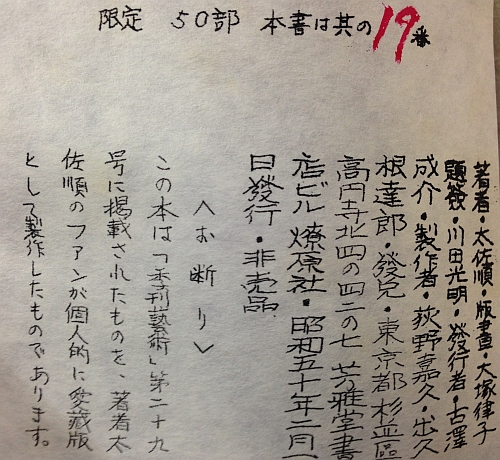 限定 50部 本書は其の19番
著者・太佐順・版畫・大塚律子
題簽・川田光明・發行者・古澤
成介・製作者・荻野嘉久・出久
根達郎・發兌・東京都杉並區
高円寺北四の四二の七 芳雅堂書
店ビル 燎原社・昭和五十年二月一
日發行・非売品
〈お断り〉
この本は「季刊藝術」第二十九
号に掲載されたものを、著者太
佐順のファンが個人的に愛藏版
として製作したものであります。